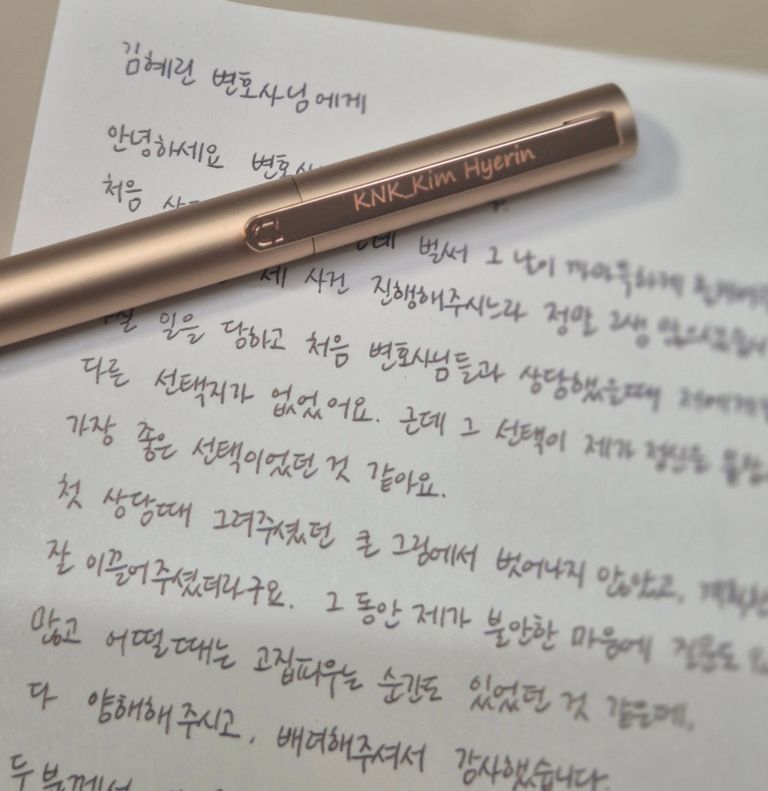 김혜린 변호사님에게
안녕하세요
처음
KNK_Kim Hyerin
벌써 그 날이 까마득하게
세 사건 진행해주시느라 정말 고생 많으셨습니다
일을 당하고 처음 변호사님들과 상담했을때 저에게는
다른 선택지가 없었어요. 근데 그 선택이 제가 정신을
가장 좋은 선택이었던 것 같아요.
첫 상담때 그려주셨던 큰 그림에서 벗어나지 않았고, 계획한
잘 이끌어주셨더라구요. 그 동안 제가 불안한 마음에 질문도
많고 어떨때는 고집피우는 순간도 있었던 것 같은데,
다 양해해주시고, 배려해주셔서 감사했습니다.
두 분께서